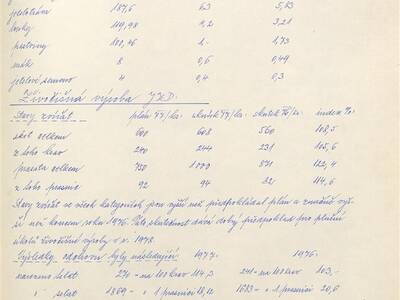 187,6 63 5,83
119,98 9,2 3,21
100,46 1.- 1,73
mák 8 0,6 0,44
jetelové semeno 4 0,4 0,3
Živočišná výroba JZD.
Stavy zvířat plán 77/ks. skuteč. 77/ks. skuteč. 76/ks. index %
skot celkem 600 608 560 108,5
z toho krav 240 244 231 105,6
prasata celkem 920 1000 871 122,4
z toho prasnic 92 94 82 114,6
Stavy zvířat ve všech kategoriích jsou vyšší než předpokládal plán a značně vyš-
ší než koncem roku 1976. Tato skutečnost dává dobrý předpoklad pro plnění
úkolů živočišné výroby v r. 1978.
Výsledky byly následující 1977. 1976.
narozeno telat 274 - na 100 krav 114,3 241 - na 100 krav 103,-
" selat 1869 - " 1 prasnici 1 20,6